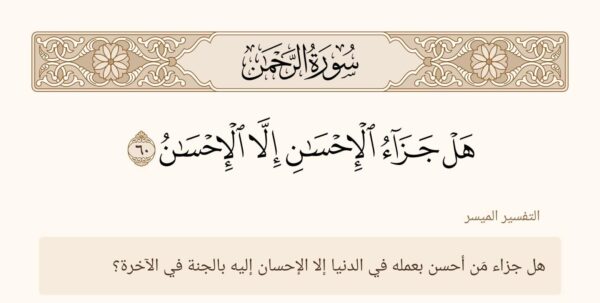 سُورَةُ الرَّحْمَٰن
هَلْ جَزَآءُ ٱلْإِحْسَٰنِ إِلَّا ٱلْإِحْسَٰنُ ٦٠
التفسير الميسر
هل جزاء مَن أحسن بعمله في الدنيا إلا الإحسان إليه بالجنة في الآخرة؟